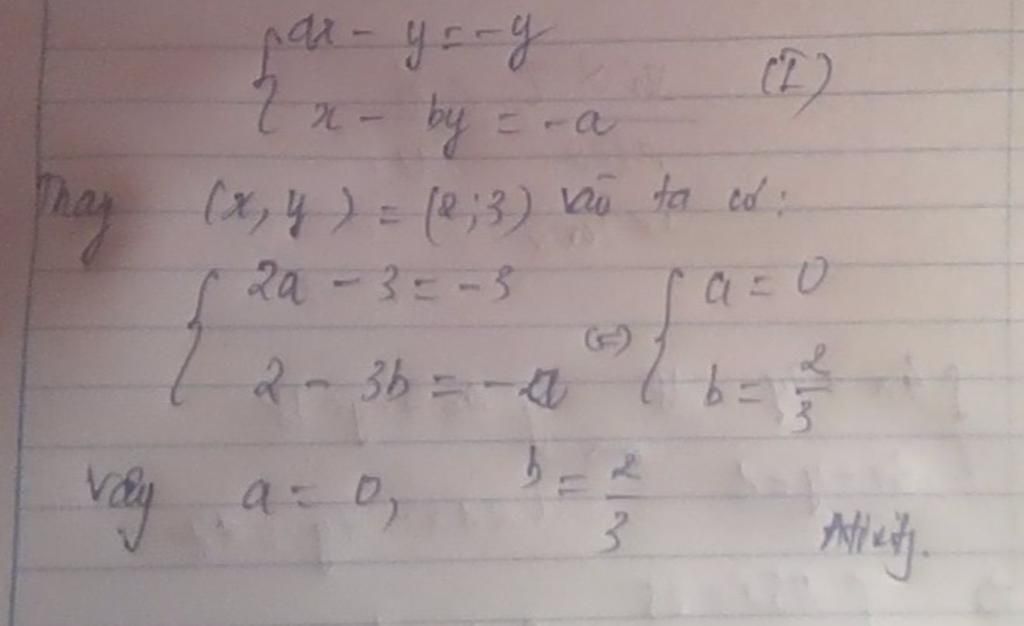 { ax - y = -y
{ x - by = -a (I)
Thay (x, y) = (2; 3) vào ta có:
{ 2a - 3 = -3 (=) { a = 0
{ 2 - 3b = -a { b = 2/3
Vậy a = 0, b = 2/3